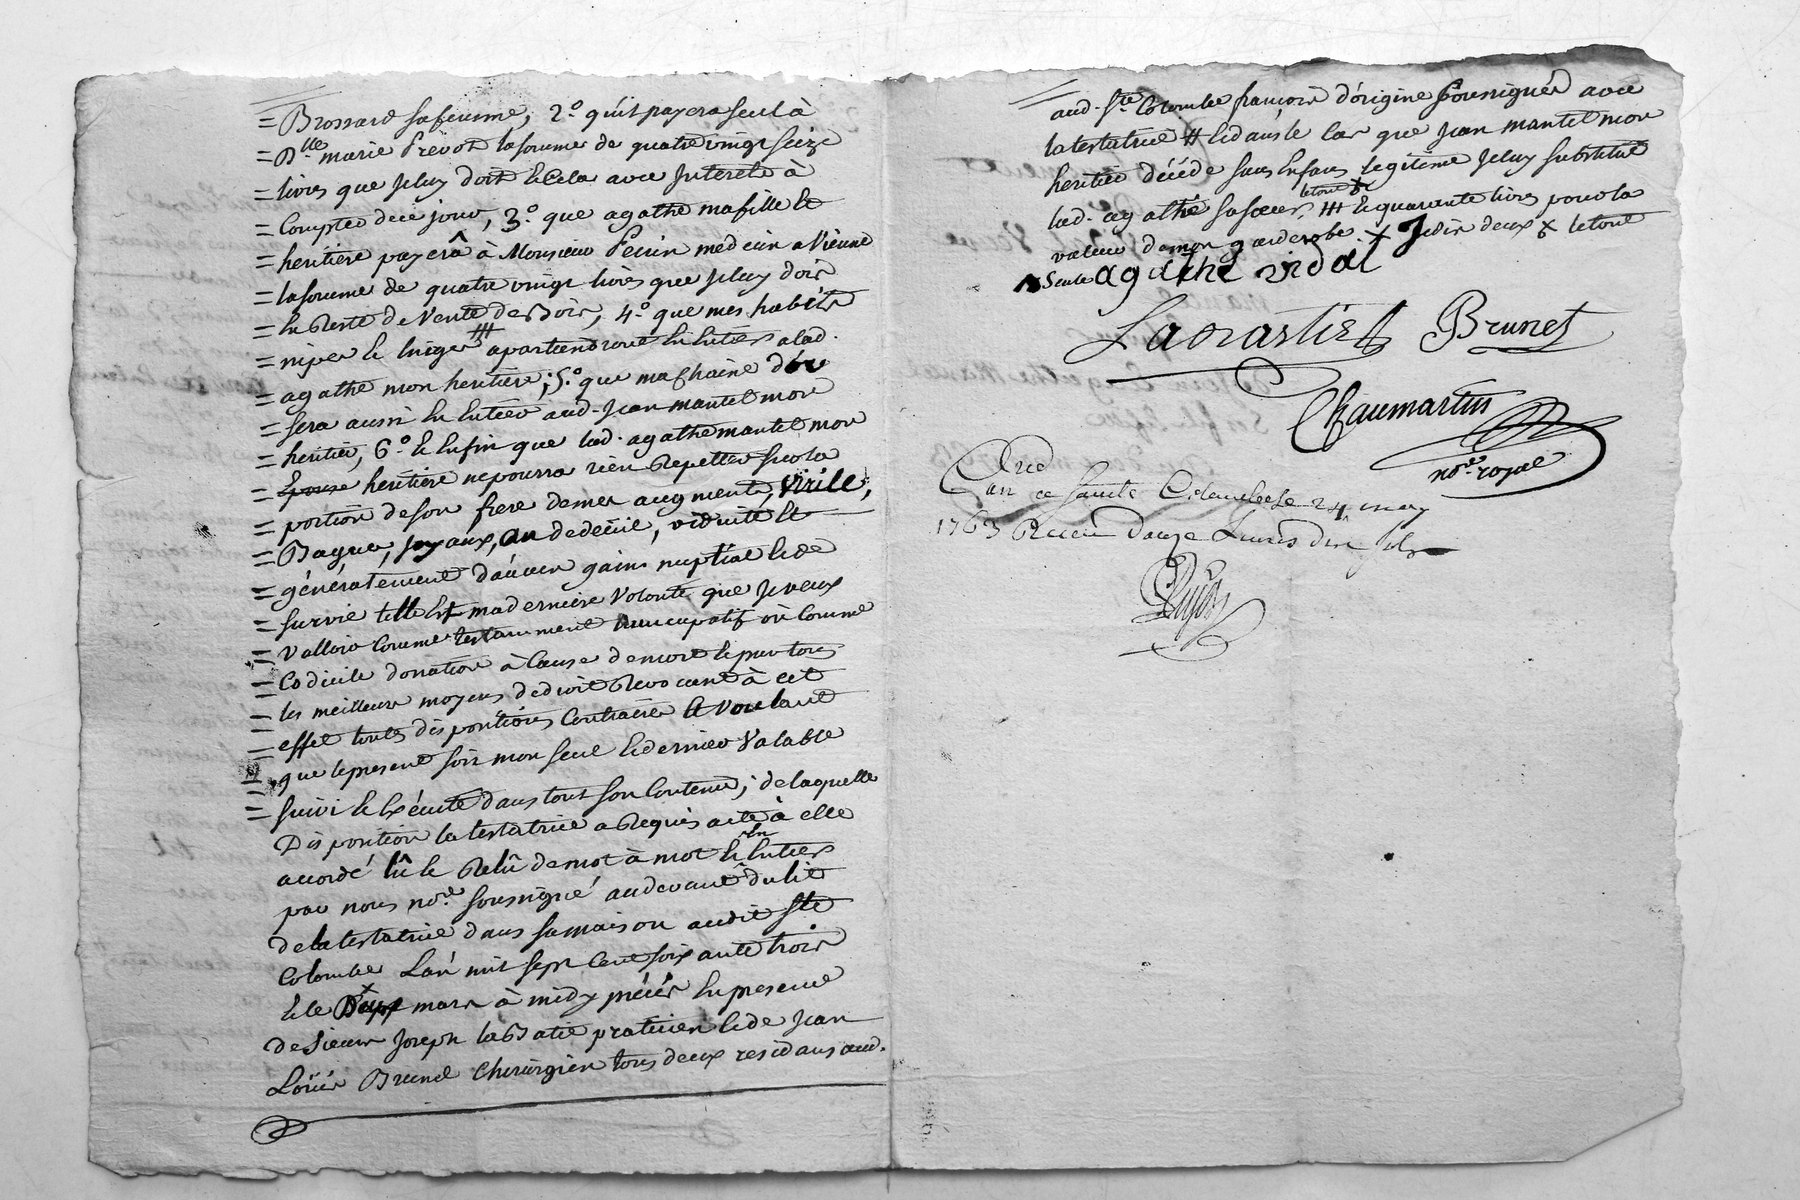 = Brossard sa femme, 2.º qu'il payera seul à
= Dlle marie Prevot la somme de quatre vingt seize
= livres que je luy doit et cela avec Interets à
= Compter de ce jour, 3.º que agathe ma fille et
= heritière payerâ à Monsieur Perrin medecin a Viènne
= la somme de quatre vingt livres que je luy dois
= En Reste de Vente de Bois, 4.º que mes habits
= nipes et linges # apartiendront En Entier a lad.
= agathe mon heritière; 5.º que ma chaine d'or
= sera aussi En Entier aud. Jean mantel mon
= heritier, 6.º et Enfin que lad. agathe mantel mon
= heritière ne pourra rièn Repetter sur la
= portion de son frere de mes augments, Virile,
= Bagues, joyaux, an de deüil, viduité et
= généralement d'aucun gains nuptial et de
= survie telle Est ma dernière Volonté que je veux
= Valloir Comme testamment nuncupatif où Comme
= Codicile donation à Cause de mort et par tous
= les meilleurs moyens de droit Revocant à cet
= effet toutes dispositions Contraires Et Voulant
= que le present soit mon seul et dernier Valable
= suivi et Exécuté dans tout son Contenu; de laquelle
Disposition la testatrice a Requis acte à elle
accordé lû et Relû de mot à mot et En Entier
par nous nore. soussigné au devant du lit
de la testatrice dans sa maison audit Ste
Colombe Lan mil sept Cent soixante trois
Et le mars à midy précis En presence
de Sieurs Joseph laBatie praticien et de Jean
Loüis Brunel Chirurgien tous deux residans aud.
aud. Ste. Colombe françois d'origine soussignés avec
la testatrice # et dans le cas que Jean mantel mon
heritier décéde sans Enfans legitime je luy substitue
lad. agathe sa sœur, # Et quarante livres pour la
valeur de mon garderobe.
agathe vidal
Brunet
Chaumartin
nore. royal
Ste Colombe le 24 may
1763 Recu Douze Livres dix sols